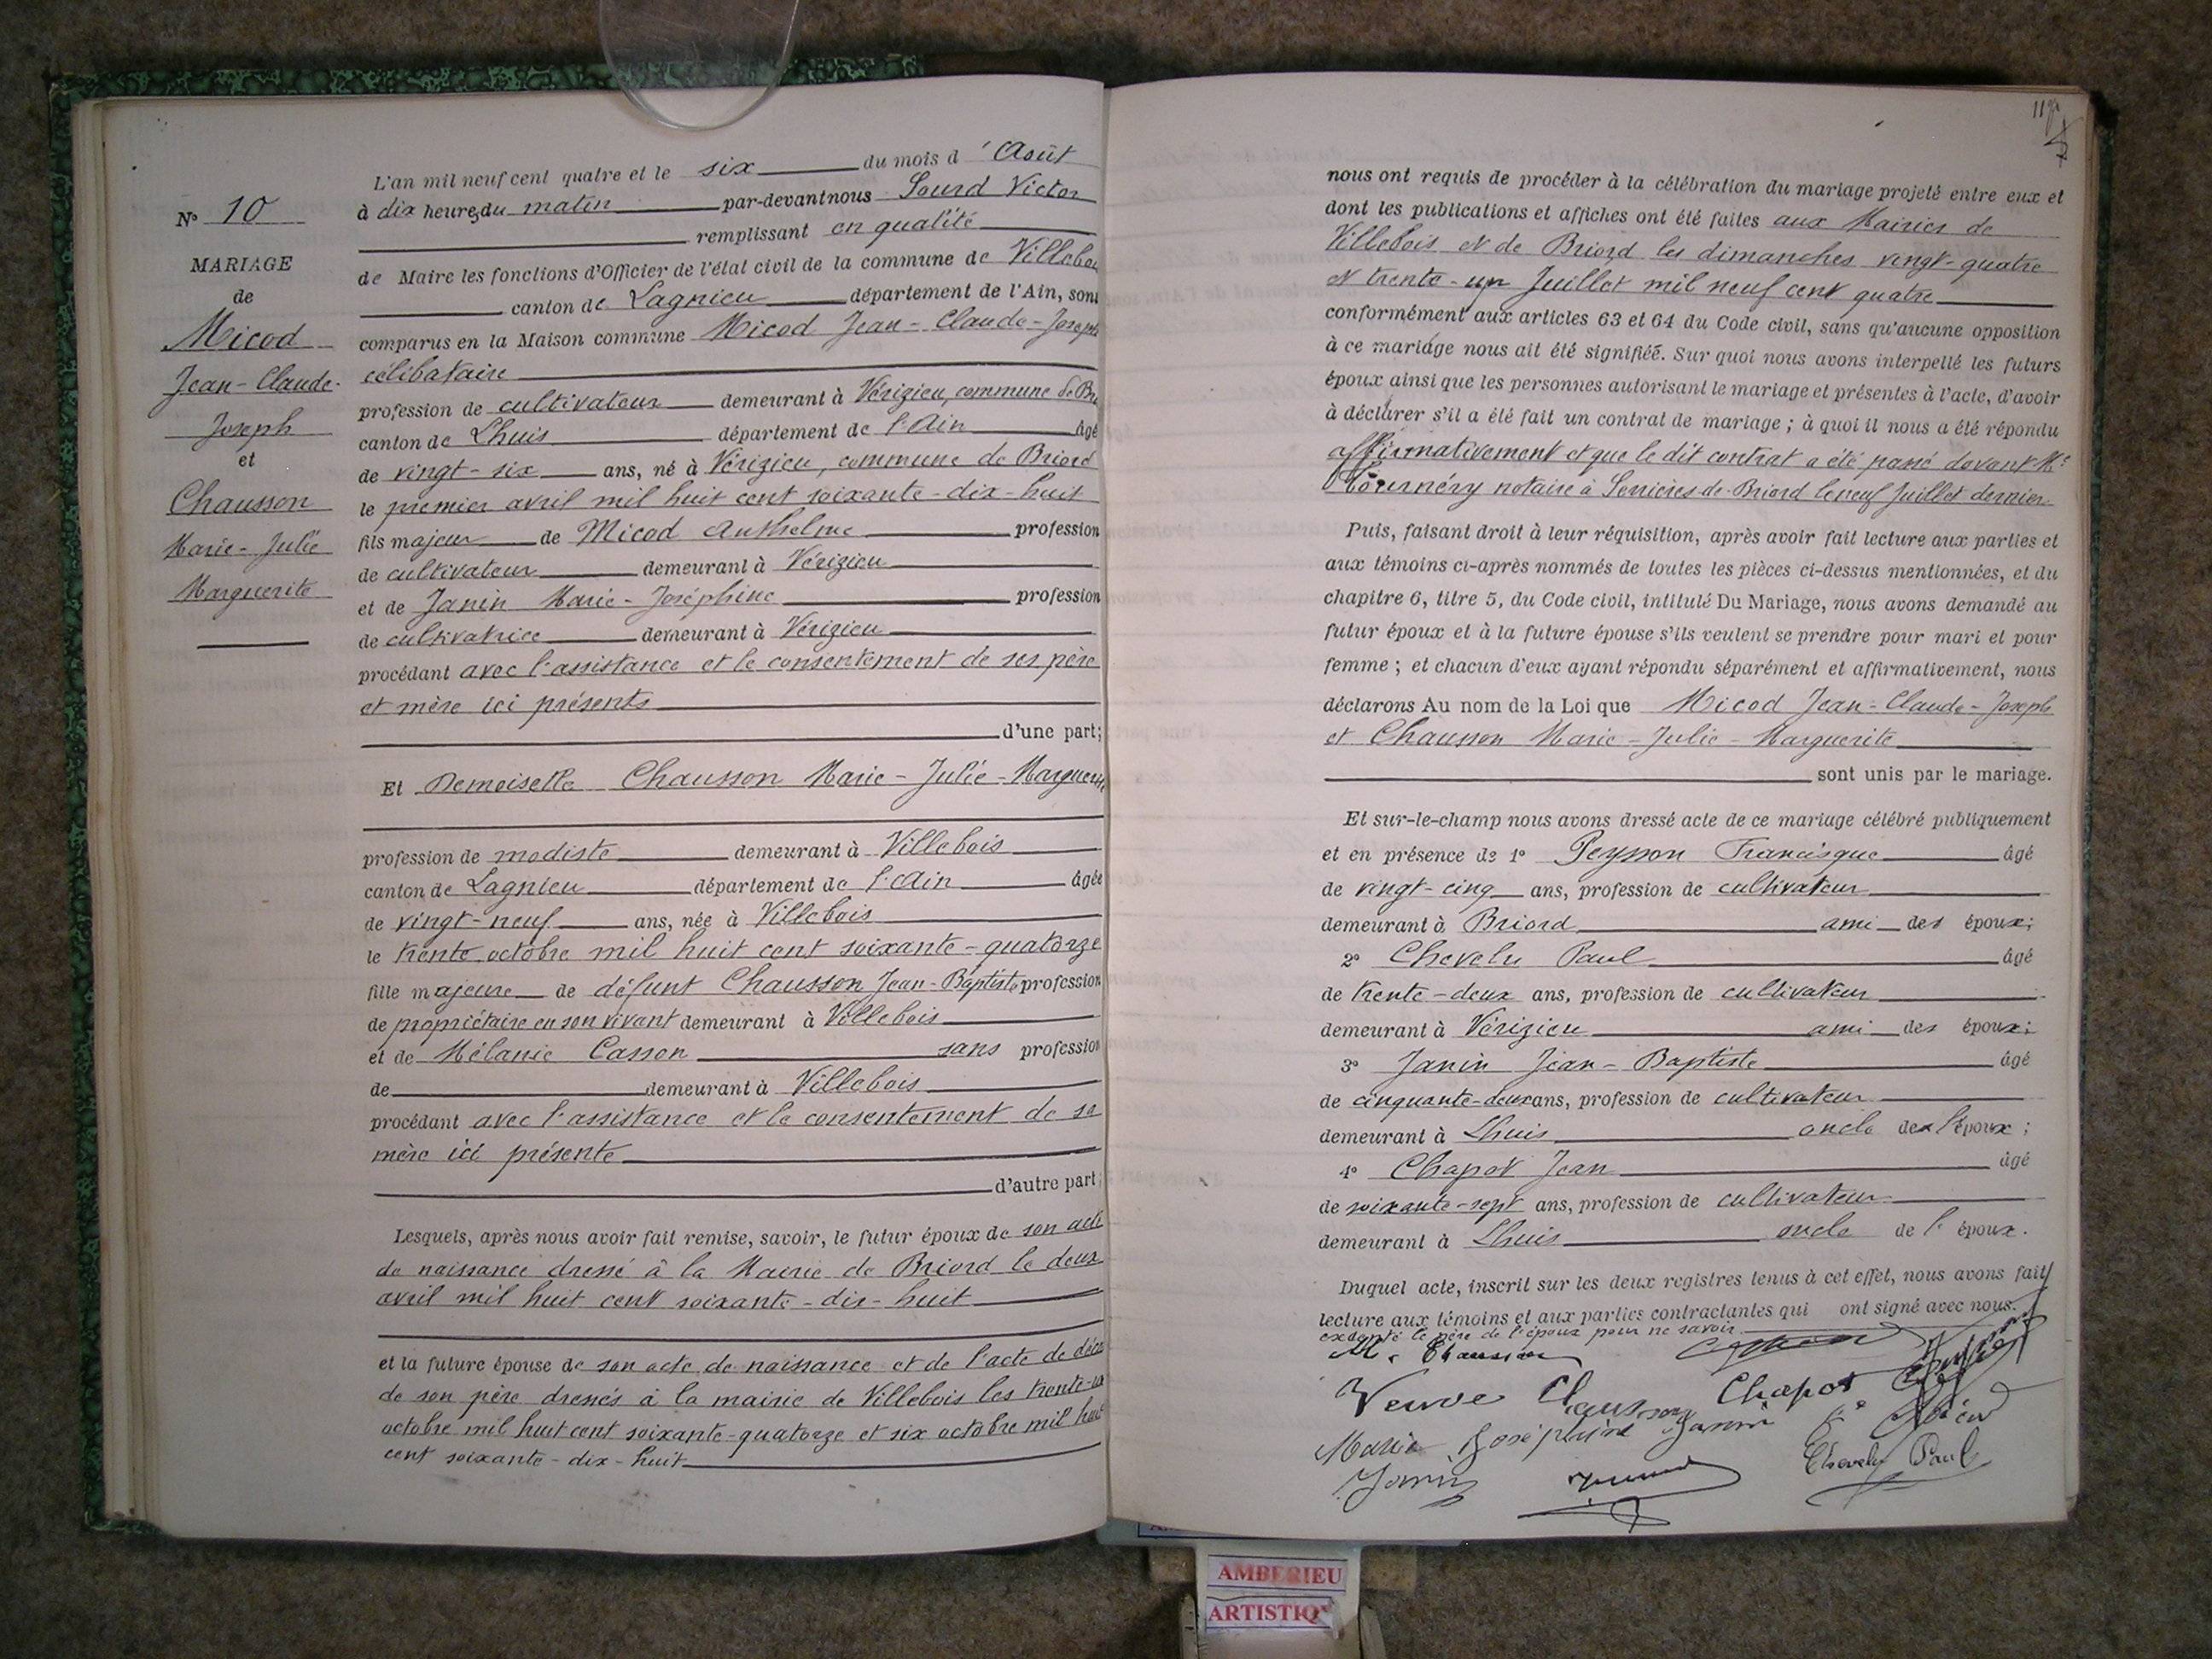 N° 10
MARIAGE
de
Micod
Jean-Claude-
Joseph
et
Chausson
Marie-Julie
Marguerite
L'an mil neuf cent quatre et le six du mois d'Août
à dix heures du matin par-devant nous Sourd Victor
remplissant en qualité
de Maire les fonctions d'Officier de l'état civil de la commune de Villebois
canton de Lagnieu département de l'Ain, sont
comparus en la Maison commune Micod Jean-Claude-Joseph
célibataire
profession de cultivateur demeurant à Vérizieu, commune de Bri
canton de Lhuis département de l'Ain âgé
de vingt-six ans, né à Vérizieu, commune de Briord
le premier avril mil huit cent soixante-dix-huit
fils majeur de Micod Anthelme profession
de cultivateur demeurant à Vérizieu
et de Janin Marie-Joséphine profession
de cultivatrice demeurant à Vérizieu
procédant avec l'assistance et le consentement de ses père
et mère ici présents
d'une part;
Et Demoiselle Chausson Marie-Julie-Marguerite
profession de modiste demeurant à Villebois
canton de Lagnieu département de l'Ain âgée
de vingt-neuf ans, née à Villebois
le trente octobre mil huit cent soixante-quatorze
fille majeure de défunt Chausson Jean-Baptiste profession
de propriétaire en son vivant demeurant à Villebois
et de Mélanie Casson sans profession
de demeurant à Villebois
procédant avec l'assistance et le consentement de sa
mère ici présente
d'autre part;
Lesquels, après nous avoir fait remise, savoir, le futur époux de son acte
de naissance dressé à la Mairie de Briord le deux
avril mil huit cent soixante-dix-huit
et la future épouse de son acte de naissance et de l'acte de décès
de son père dressés à la mairie de Villebois les trente-un
octobre mil huit cent soixante-quatorze et six octobre mil huit
cent soixante-dix-huit
nous ont requis de procéder à la célébration du mariage projeté entre eux et
dont les publications et affiches ont été faites aux Mairies de
Villebois et de Briord les dimanches vingt-quatre
et trente-un Juillet mil neuf cent quatre
conformément aux articles 63 et 64 du Code civil, sans qu'aucune opposition
à ce mariage nous ait été signifiée. Sur quoi nous avons interpellé les futurs
époux ainsi que les personnes autorisant le mariage et présentes à l'acte, d'avoir
à déclarer s'il a été fait un contrat de mariage ; à quoi il nous a été répondu
affirmativement et que le dit contrat a été passé devant Me
Tournéry notaire à Serrières-de-Briord le neuf Juillet dernier
Puis, faisant droit à leur réquisition, après avoir fait lecture aux parties et
aux témoins ci-après nommés de toutes les pièces ci-dessus mentionnées, et du
chapitre 6, titre 5, du Code civil, intitulé Du Mariage, nous avons demandé au
futur époux et à la future épouse s'ils veulent se prendre pour mari et pour
femme ; et chacun d'eux ayant répondu séparément et affirmativement, nous
déclarons Au nom de la Loi que Micod Jean-Claude-Joseph
et Chausson Marie-Julie-Marguerite
sont unis par le mariage.
Et sur-le-champ nous avons dressé acte de ce mariage célébré publiquement
et en présence de 1° Peysson Francisque âgé
de vingt-cinq ans, profession de cultivateur
demeurant à Briord ami des époux;
2° Chevelu Paul âgé
de trente-deux ans, profession de cultivateur
demeurant à Vérizieu ami des époux;
3° Janin Jean-Baptiste âgé
de cinquante-deux ans, profession de cultivateur
demeurant à Lhuis oncle de l'époux;
4° Chapot Jean âgé
de soixante-sept ans, profession de cultivateur
demeurant à Lhuis oncle de l'époux.
Duquel acte, inscrit sur les deux registres tenus à cet effet, nous avons fait
lecture aux témoins et aux parties contractantes qui ont signé avec nous.
excepté le père de l'époux pour ne savoir
M. Chausson
Veuve Chausson Chapot
Marie Joséphine Janin
Janin
Chevelu Paul
AMBERIEU
ARTISTIQ